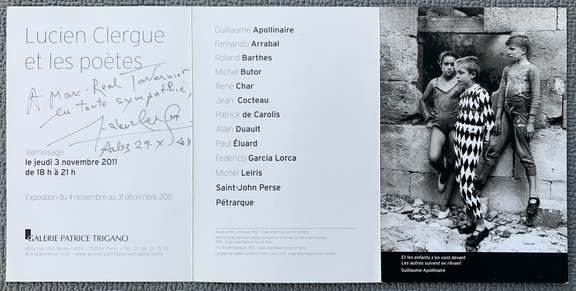 Lucien Clergue
et les poètes
A Marc-Réal Tavernier
en toute sympathie,
Arles 29.X
Vernissage
le jeudi 3 novembre 2011
de 18 h à 21 h
Exposition du 4 novembre au 31 décembre 2011
GALERIE PATRICE TRIGANO
4bis rue des Beaux-Arts - 75006 Paris
Guillaume Apollinaire
Fernando Arrabal
Roland Barthes
Michel Butor
René Char
Jean Cocteau
Patrick de Carolis
Alain Duault
Paul Éluard
Federico Garcia Lorca
Michel Leiris
Saint-John Perse
Pétrarque
Et les enfants s'en vont devant
Les autres suivent en rêvant
Guillaume Apollinaire